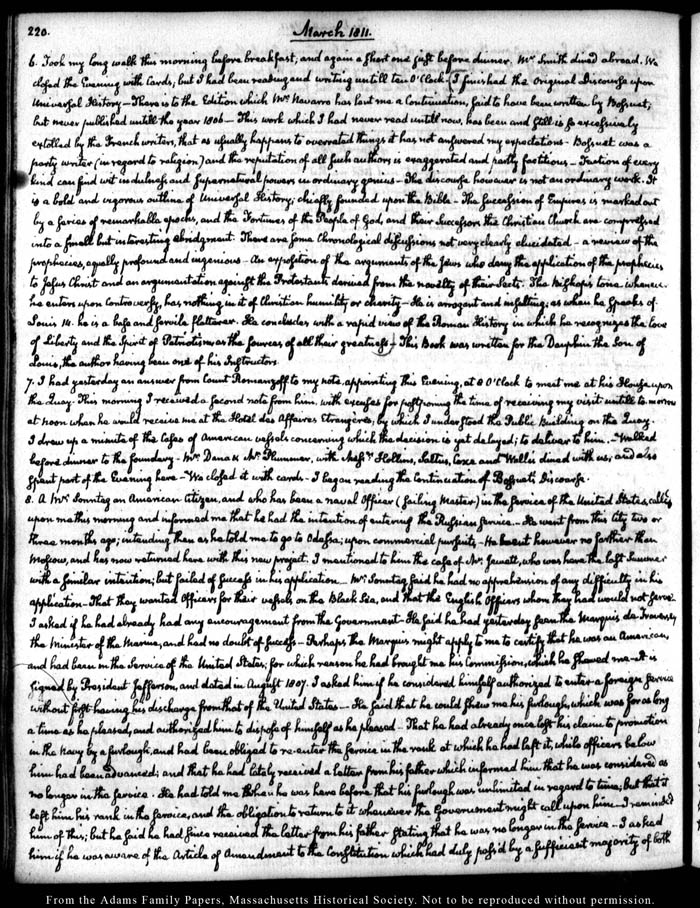 220.
March 1811.
6. Took my long walk this morning before breakfast, and again a short one just before dinner. Mr Smith dined abroad. We
closed the Evening with Cards, but I had been reading and writing untill ten O'Clock. I finished the Original Discourse upon
Universal History— There is to the Edition which Mr Navarro has lent me a Continuation, said to have been written by Bossuet,
but never published untill the year 1806— This work which I had never read untill now, has been and still is so excessively
extolled by the French writers, that as usually happens to overrated things it has not answered my expectations— Bossuet was a
party writer (in regard to religion) and the reputation of all such authors is exaggerated and partly factitious— Faction of every
kind can find wit in dulness and supernatural powers in ordinary genius— The discourse however is not an ordinary work. It
is a bold and vigorous outline of Universal History; chiefly founded upon the Bible— The Succession of Empires is marked out
by a series of remarkable epochs, and the Fortunes of the People of God, and their Successors the Christian Church are compressed
into a small but interesting abridgment. There are some Chronological discussions not very clearly elucidated— a review of the
prophecies, equally profound and ingenious— An exposition of the arguments of the Jews who deny the application of the prophecies
to Jesus Christ and an argumentation against the Protestants derived from the novelty of their Sects. The Bishop's tone whenever
he enters upon Controversy, has nothing in it of Christian humility or charity— He is arrogant and insulting; as when he speaks of
Louis 14. he is a base and servile flatterer. He concludes with a rapid view of the Roman History in which he recognizes the love
of Liberty and the Spirit of Patriotism as the sources of all their greatness— This Book was written for the Dauphin the Son of
Louis, the author having been one of his Instructors.
7. I had yesterday an answer from Count Romanzoff to my note, appointing this Evening, at 8 O'Clock to meet me at his House upon
the Quay. This morning I received a second note from him, with excuses for postponing the time of receiving my visit untill to-morrow
at noon when he would receive me at the Hotel des Affaires Etrangères, by which I understood the Public Building on the Quay.
I drew up a minute of the Cases of American vessels concerning which the decision is yet delayed; to deliver to him.— Walked
before dinner to the foundery— Mr Dana & Mr Plummer, with Messrs Hollins, Saltus, Coxe and Wallis dined with us; and also
spent part of the Evening here— We closed it with cards— I began reading the Continuation of Bossuet's Discourse.
8. A Mr Sonntag an American Citizen, and who has been a naval Officer (Sailing Master) in the service of the United States, called
upon me this morning and informed me that he had the intention of entering the Russian Service— He went from this City two or
three months ago; intending then as he told me to go to Odessa; upon commercial pursuits— He went however no farther than
Moscow, and has now returned here with this new project. I mentioned to him the case of Mr Jewett, who was here the last Summer
with a similar intention; but failed of success in his application— Mr Sonntag said he had no apprehension of any difficulty in his
application— That they wanted Officers for their vessels on the Black Sea, and that the English Officers whom they had would not serve.
I asked if he had already had any encouragement from the Government— He said he had yesterday seen the Marquis de Traversey
the Minister of the Marine, and had no doubt of success— Perhaps the Marquis might apply to me to certify that he was an American,
and had been in the Service of the United States; for which reason he had brought me his Commission, which he shewed me— It is
signed by President Jefferson, and dated in August 1807. I asked him if he considered himself authorized to enter a foreign service
without first having his discharge from that of the United States— He said that he could shew me his furlough, which was for as long
a time as he pleased, and authorized him to dispose of himself as he pleased— That he had already once lost his claim to promotion
in the Navy by a furlough, and had been obliged to re-enter the service in the rank at which he had left it, while officers below
him had been advanced; and that he had lately received a letter from his father which informed him that he was considered as
no longer in the service. He had told me when he was here before that his furlough was unlimited in regard to time; but that it
left him his rank in the service, and the obligation to return to it whenever the Government might call upon him— I reminded
him of this; but he said he had since received the letter from his father stating that he was no longer in the service. I asked
him if he was aware of the Article of Amendment to the Constitution which had duly pass'd by a sufficient majority of both
From the Adams Family Papers, Massachusetts Historical Society. Not to be reproduced without permission.